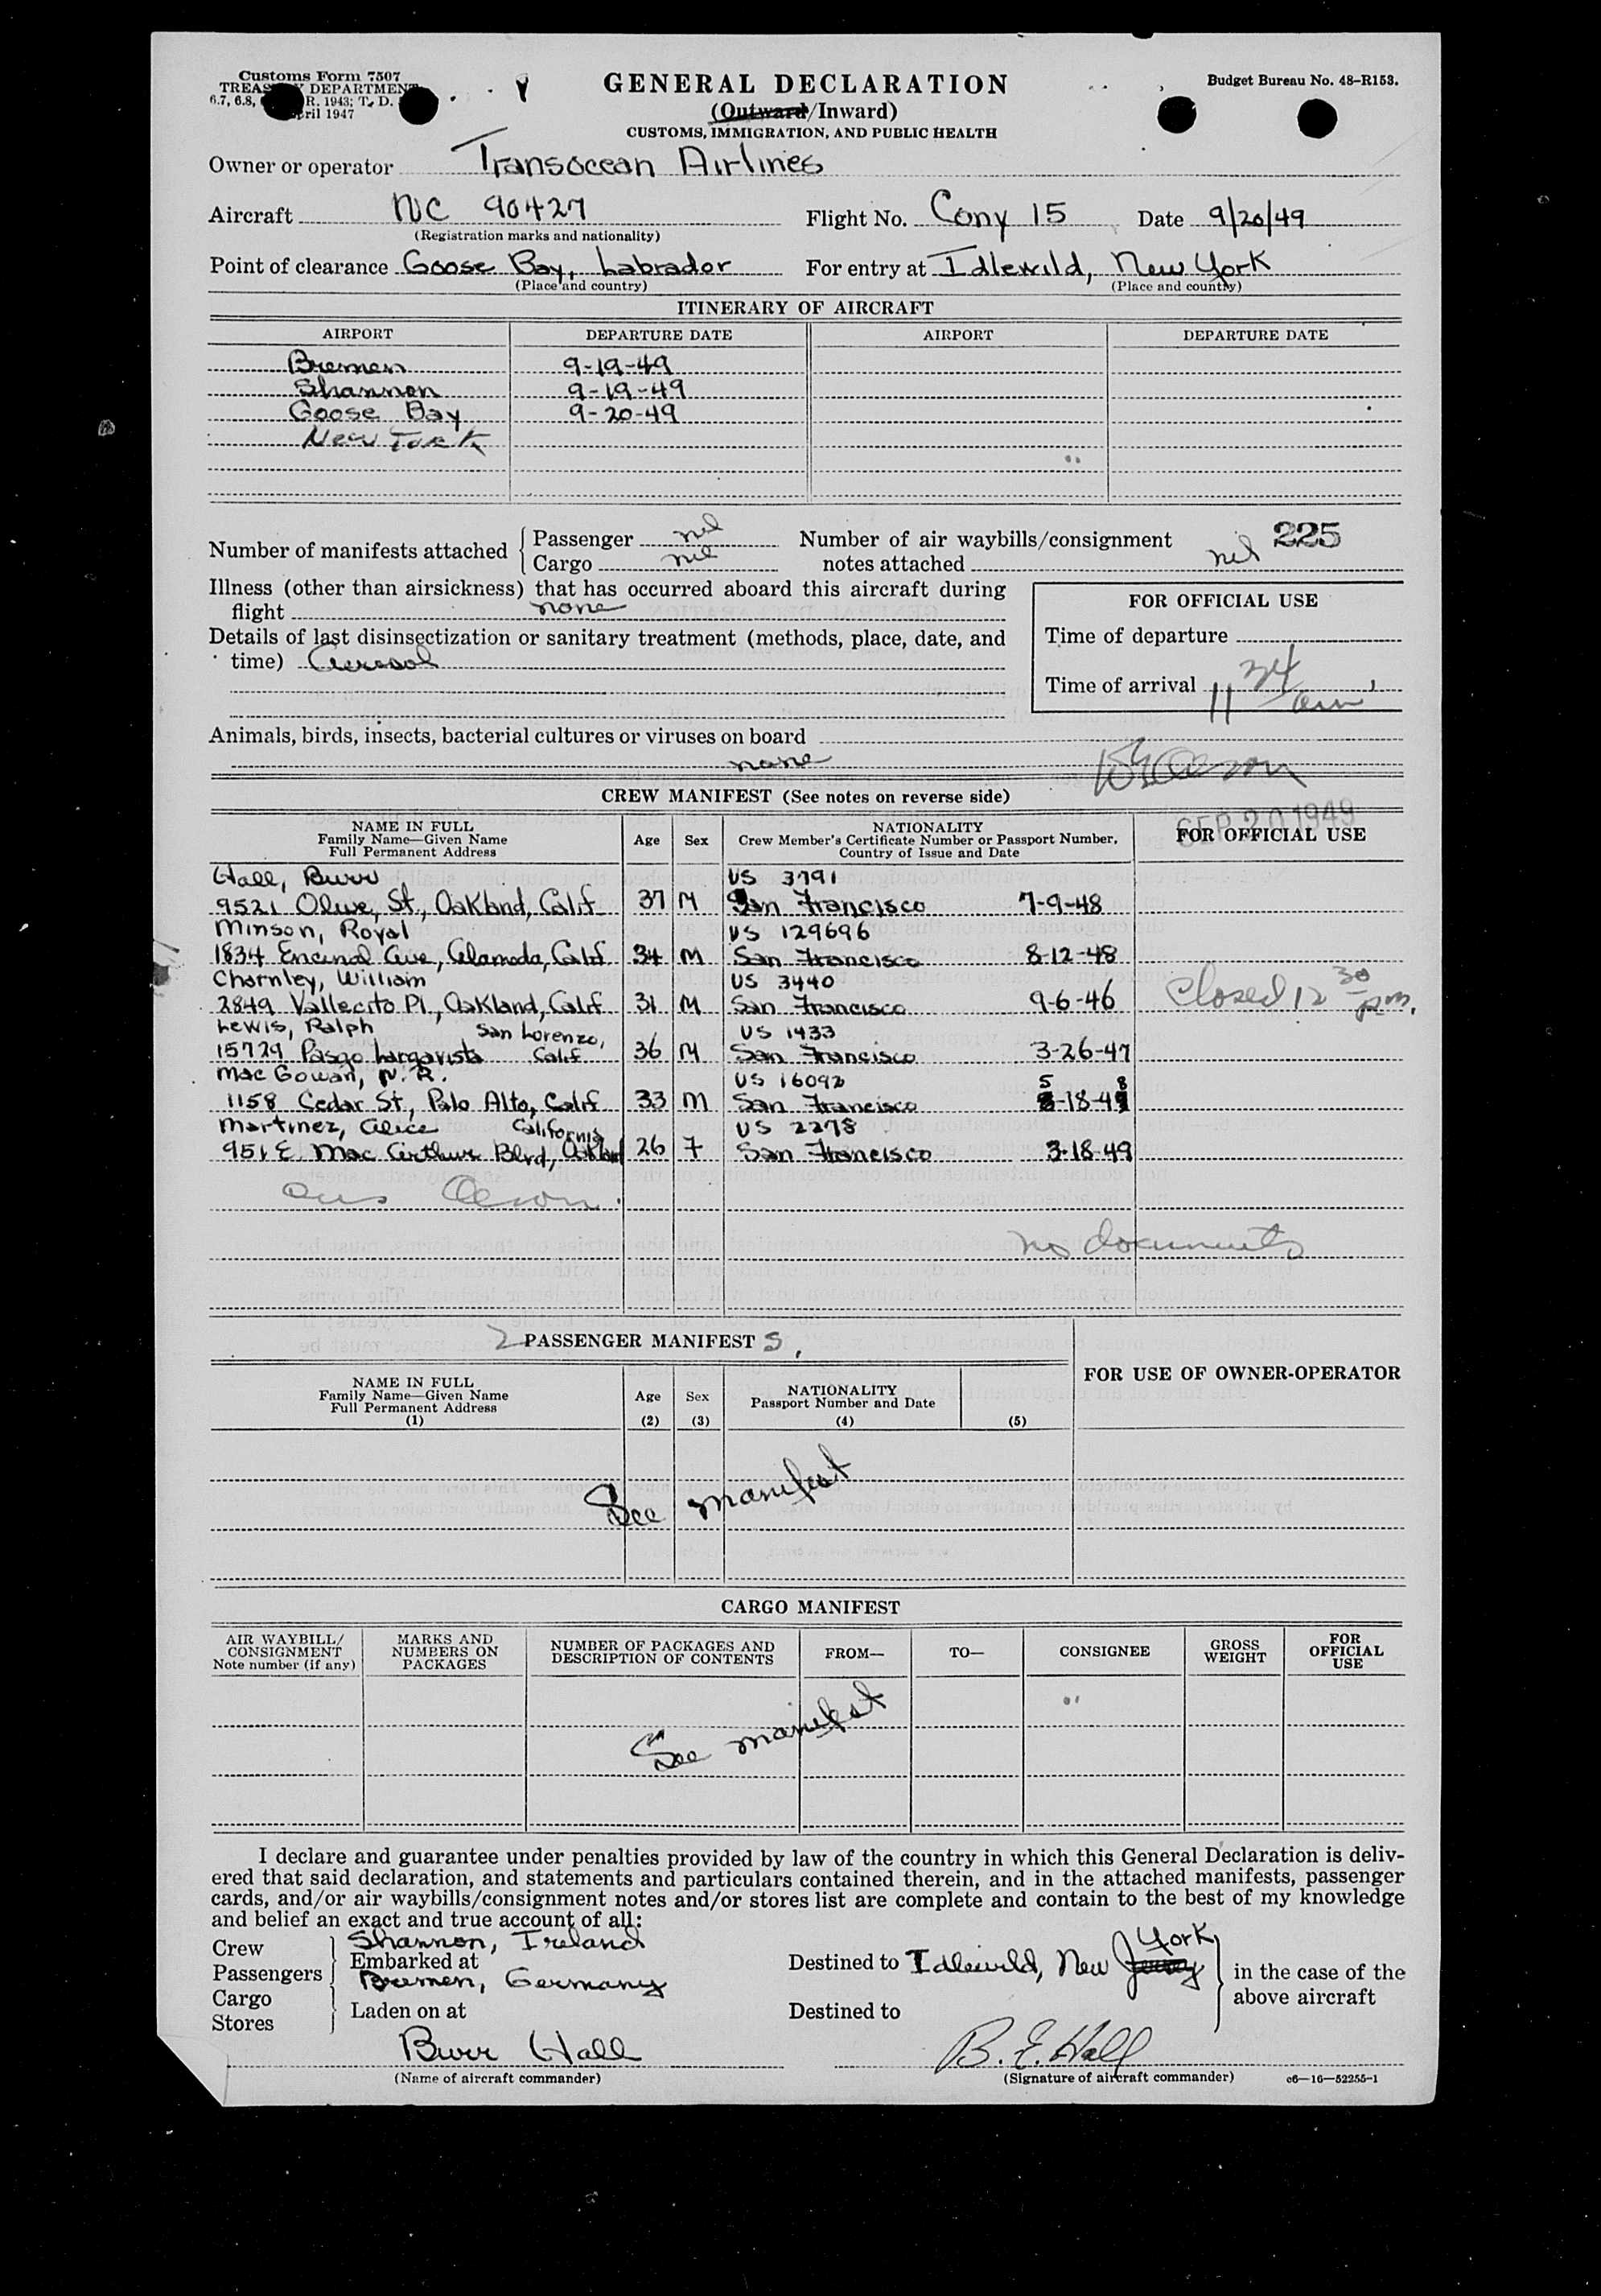 Customs Form 7507
TREASURY DEPARTMENT
6.7, 6.8, R. 1943; T. D.
April 1947
GENERAL DECLARATION
(Outward/Inward)
CUSTOMS, IMMIGRATION, AND PUBLIC HEALTH
Budget Bureau No. 48-R153.
Owner or operator Transocean Airlines
Aircraft NC 90427 Flight No. Cony 15 Date 9/20/49
(Registration marks and nationality)
Point of clearance Goose Bay, Labrador For entry at Idlewild, New York
(Place and country) (Place and country)
ITINERARY OF AIRCRAFT
AIRPORT DEPARTURE DATE AIRPORT DEPARTURE DATE
Bremen 9-19-49
Shannon 9-19-49
Goose Bay 9-20-49
New York
Number of manifests attached Passenger nil Number of air waybills/consignment 225
Cargo nil notes attached nil
Illness (other than airsickness) that has occurred aboard this aircraft during
flight none
Details of last disinsectization or sanitary treatment (methods, place, date, and
time) Aerosol
FOR OFFICIAL USE
Time of departure
Time of arrival 11 34 am
Animals, birds, insects, bacterial cultures or viruses on board
none
CREW MANIFEST (See notes on reverse side)
SEP 20 1949
NAME IN FULL
Family Name—Given Name
Full Permanent Address
Age Sex
NATIONALITY
Crew Member's Certificate Number or Passport Number,
Country of Issue and Date
FOR OFFICIAL USE
Hall, Burr US 3791
9521 Olive, St., Oakland, Calif 37 M San Francisco 7-9-48
Minson, Royal US 129696
1834 Encinal Ave, Alameda, Calif 34 M San Francisco 8-12-48
Chornley, William US 3440
2849 Vallecito Pl., Oakland, Calif 31 M San Francisco 9-6-46 Closed 12 30 p.m.
Lewis, Ralph San Lorenzo, US 1433
15729 Paseo Largavista Calif 36 M San Francisco 3-26-47
MacGowan, N. R. US 16092 5 8
1158 Cedar St., Palo Alto, Calif 33 M San Francisco -18-4
Martinez, Alice California US 2278
951 E. MacArthur Blvd, Oakland 26 F San Francisco 3-18-49
no documents
2 PASSENGER MANIFEST S
NAME IN FULL
Family Name—Given Name
Full Permanent Address
(1)
Age
(2)
Sex
(3)
NATIONALITY
Passport Number and Date
(4)
(5)
FOR USE OF OWNER-OPERATOR
See manifest
CARGO MANIFEST
AIR WAYBILL/
CONSIGNMENT
Note number (if any)
MARKS AND
NUMBERS ON
PACKAGES
NUMBER OF PACKAGES AND
DESCRIPTION OF CONTENTS
FROM—
TO—
CONSIGNEE
GROSS
WEIGHT
FOR
OFFICIAL
USE
See manifest
I declare and guarantee under penalties provided by law of the country in which this General Declaration is deliv-
ered that said declaration, and statements and particulars contained therein, and in the attached manifests, passenger
cards, and/or air waybills/consignment notes and/or stores list are complete and contain to the best of my knowledge
and belief an exact and true account of all:
Crew Shannon, Ireland York
Passengers Embarked at Destined to Idlewild, New Jersey in the case of the
Bremen, Germany above aircraft
Cargo
Stores Laden on at Destined to
Burr Hall B. E. Hall
(Name of aircraft commander) (Signature of aircraft commander) c6—16—52255-1